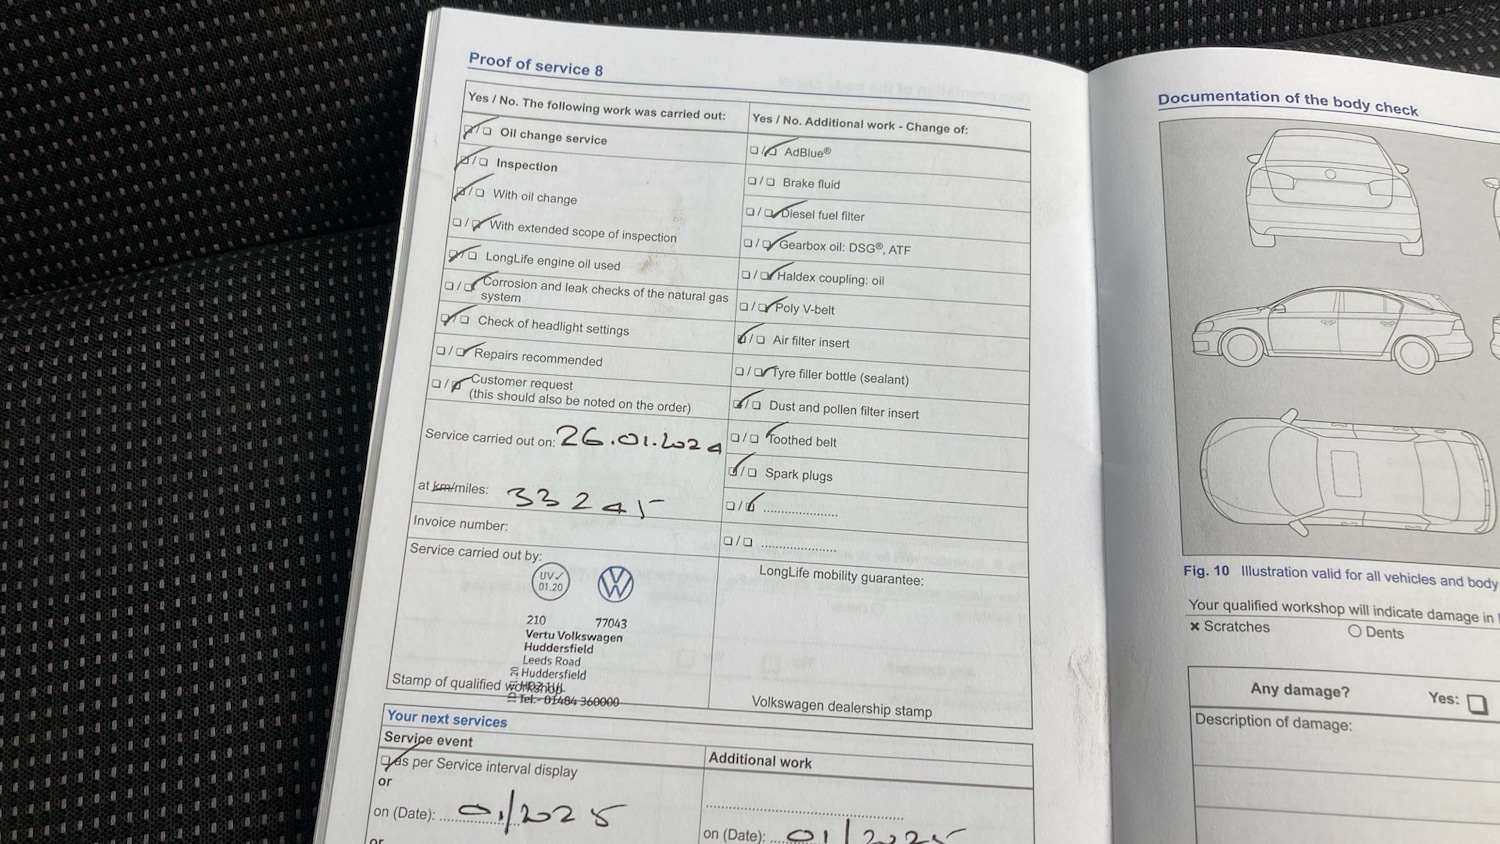 Proof of service 8
Yes / No. The following work was carried out:
Oil change service
Inspection
With oil change
With extended scope of inspection
LongLife engine oil used
Corrosion and leak checks of the natural gas
system
Check of headlight settings
Repairs recommended
Customer request
(this should also be noted on the order)
Service carried out on: 26.01.2024
at km/miles: 33245
Invoice number:
Service carried out by:
UV✓
01.20
VW
210 77043
Vertu Volkswagen
Huddersfield
Leeds Road
Huddersfield
Tel:- 01484 360000
Stamp of qualified workshop
Yes / No. Additional work - Change of:
AdBlue®
Brake fluid
Diesel fuel filter
Gearbox oil: DSG®, ATF
Haldex coupling: oil
Poly V-belt
Air filter insert
Tyre filler bottle (sealant)
Dust and pollen filter insert
Toothed belt
Spark plugs
LongLife mobility guarantee:
Volkswagen dealership stamp
Your next services
Service event
as per Service interval display
or
on (Date): 01/2025
or
Additional work
on (Date): 01/2025
Documentation of the body check
Fig. 10 Illustration valid for all vehicles and body
Your qualified workshop will indicate damage in
× Scratches
Dents
Any damage? Yes:
Description of damage: